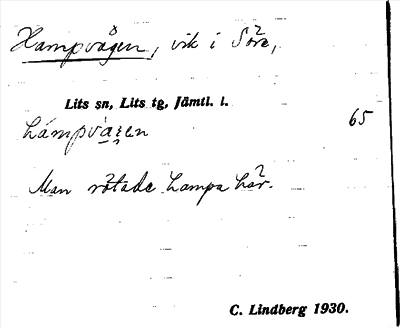 Hampvågen, vik i Söre,
Lits sn, Lits tg, Jämtl. l.
hámpvàgen 65
Man rötade hampa här.
C. Lindberg 1930.